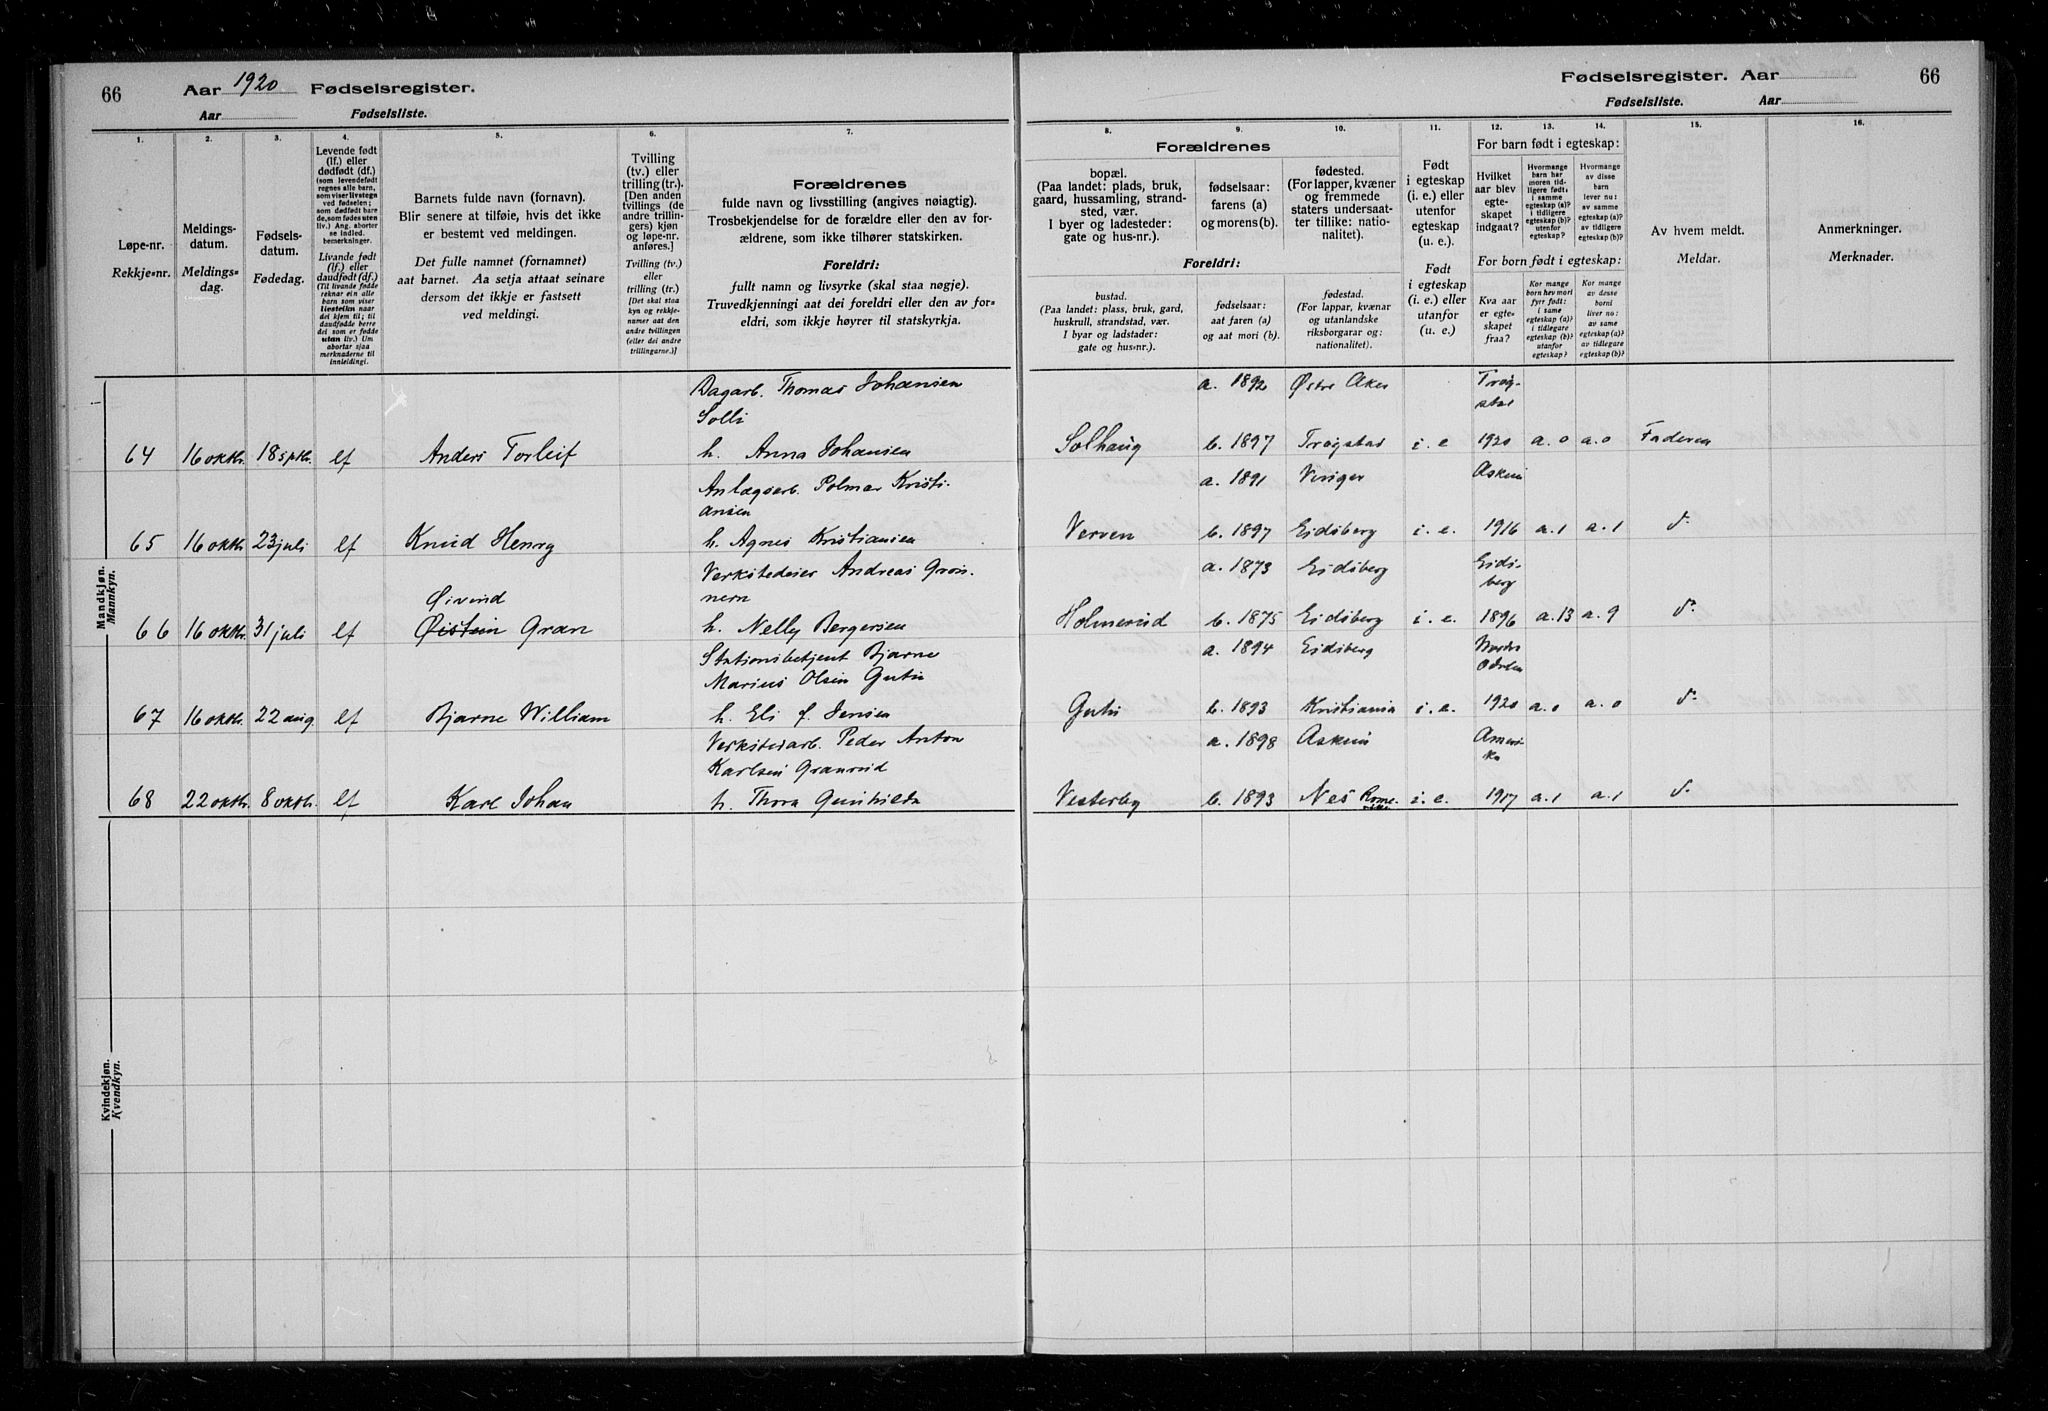 66
Aar 1920 Fødselsregister.
Aar Fødselsliste.
1.
2.
3.
4.
5.
6.
7.
Løpe-nr.
Rekkje-nr.
Meldings-
datum.
Meldings-
dag.
Fødsels-
datum.
Fødedag.
Levende født
(lf.) eller
dødfødt (df.)
(som levendefødt
regnes alle barn,
som viser livstegn
ved fødselen;
som dødfødt bare
de, som fødes uten
liv.) Ang. aborter
se indled.
bemerkninger.
Livande født
(lf.) eller
daudfødt (df.)
(Til livande fødde
reknar ein alle
born som viser
livsteikn naar
dei kjem til; til
daudfødde berre
dei som er fødde
utan liv.) Um
abortar sjaa
merknaderne til
innleidingi.
Barnets fulde navn (fornavn).
Blir senere at tilføie, hvis det ikke
er bestemt ved meldingen.
Det fulle namnet (fornamnet)
aat barnet. Aa setja attaat seinare
dersom det ikkje er fastsett
ved meldingi.
Tvilling
(tv.) eller
trilling (tr.).
[Den anden
tvillings (de
andre trillin-
gers) kjøn
og løpe-nr.
anføres.]
Tvilling (tv.)
eller
trilling (tr.)
[Det skal staa
kyn og rekkje-
numer aat den
andre tvillingen
(eller dei andre
trillingarne.)]
Forældrenes
fulde navn og livsstilling (angives nøiagtig).
Trosbekjendelse for de forældre eller den av for-
ældrene, som ikke tilhører statskirken.
Foreldri:
fullt namn og livsyrke (skal staa nøgje).
Truvedkjenningi aat dei foreldri eller den av for-
eldri, som ikkje høyrer til statskyrkja.
Mandkjøn.
Mannkyn.
Dagarb. Thomas Johansen
Solli
64 16 oktb. 18 sptb. lf Anders Torleif h. Anna Johansen
Anlægsarb. Polmar Kristi-
ansen
65 16 oktb. 23 juli lf Knud Henry h. Agnes Kristiansen
Verkstedeier Andreas Grøn-
nern
Øivind
66 16 oktb. 31 juli lf Øistein Gran h. Nelly Bergersen
Stationsbetjent Bjarne
Marius Olsen Gutu
67 16 oktb. 22 aug. lf Bjarne William h. Eli f. Jensen
Verkstedarb. Peder Anton
Karlsen Granrud
68 22 oktb. 8 oktb. lf Karl Johan h. Thora Gunhilda
Kvindekjøn.
Kvendkyn.
Fødselsregister. Aar 66
Fødselsliste. Aar
8.
9.
10.
11.
12.
13.
14.
15.
16.
Forældrenes
bopæl.
(Paa landet: plads, bruk,
gaard, hussamling, strand-
sted, vær.
I byer og ladesteder:
gate og hus-nr.).
fødselsaar:
farens (a)
og morens (b).
fødested.
(For lapper, kvæner
og fremmede
staters undersaat-
ter tillike: natio-
nalitet).
Foreldri:
bustad.
(Paa landet: plass, bruk, gard,
huskrull, strandstad, vær.
I byar og ladstader:
gate og hus-nr.).
fødselsaar:
aat faren (a)
og aat mori (b).
fødestad.
(For lappar, kvænar
og utanlandske
riksborgarar og:
nationalitet).
Født
i egteskap
(i. e.) eller
utenfor
egteskap
(u. e.).
Født
i egteskap
(i. e.) eller
utanfor
(u. e.).
For barn født i egteskap:
Hvilket
aar blev
egte-
skapet
indgaat?
Hvormange
barn har
moren tid-
ligere født:
i samme
egteskap (a)?
i tidligere
egteskap (b)?
utenfor
egteskap?
Hvormange
av disse
barn
lever nu:
av samme
egteskap (a)?
av tidligere
egteskap (b)?
For born født i egteskap:
Kva aar
er egte-
skapet
fraa?
Kor mange
born hev mori
fyrr født:
i same
egteskap (a)?
i tidlegare
egteskap (b)?
utanfor
egteskap?
Kor mange
av desse
borni
liver no:
av same
egteskap (a)?
av tidlegare
egteskap (b)?
Av hvem meldt.
Meldar.
Anmerkninger.
Merknader.
a. 1892 Østre Aker Trøg-
stad
Solhaug b. 1897 Trøgstad i. e 1920 a. 0 a. 0 Faderen
a. 1891 Vinger Askim
Verven b. 1897 Eidsberg i. e. 1916 a. 1 a. 1 d°
a. 1873 Eidsberg Eids-
berg
Holmerud b. 1875 Eidsberg i. e. 1896 a. 13 a. 9 d°
a. 1894 Eidsberg Nordre
Odalen
Gutu b. 1893 Kristiania i. e. 1920 a. 0 a. 0 d°
a. 1898 Askim Ameri-
ka
Vesterby b. 1893 Nes Rome-
rike i. e. 1917 a. 1 a. 1 d°